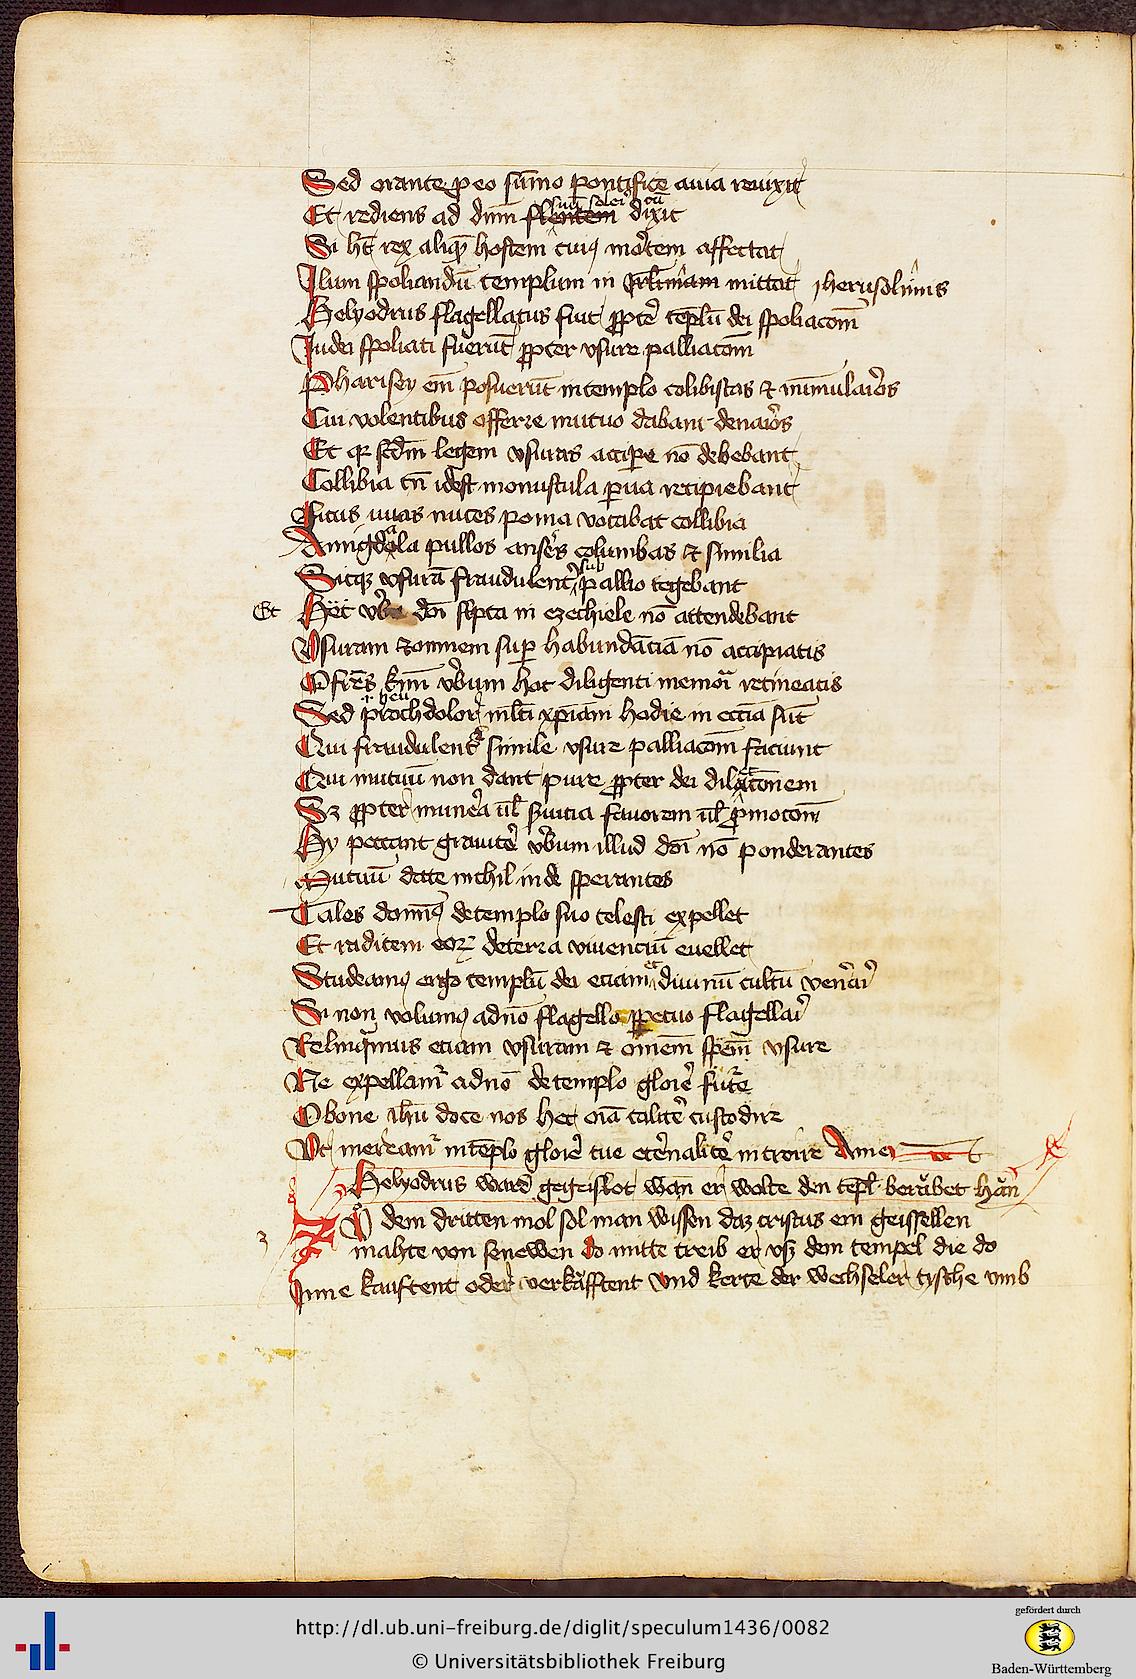 Sed orante p eo sūmo pontifice auia reuixit
Et rediens ad dnm flentem dixit
Si ht rex aliqē hostem cuiꝰ mortem affectat
Ilum spoliandū templum in mittat jherusolimis
Helyodrus flagellatus fuit ꝓpter teplū dei spoliacōm
Judei spoliati fuerūt ꝓpter vsure palliacōm
Pharisey em posuerūt in templo colibistas et nūmulaīos
Cui volentibus offerre mutuo dabant denaīos
Et qr scdm legem vsuras accipe nō debebant
Collibia tn idest monustula pua recipiebant
Ficus uuas nuces poma vocabat collibia
Amigdala pullos anseres columbas et similia
sub
Sicqꝫ vsurā fraudulentr pallio tegebant
Et Hec vba dni scpta in ezechiele nō attendebant
Vsuram et omnem sup habundātiā nō accipiatis
O frēs kmi vbum hoc diligenti memoī retineatis
.i. heu
Sed prochdolor mlti xpiani hodie in eccia sūt
Qui fraudulentr simile vsure palliacōm faciunt
Qui mutuū non dant pure ꝓpter dei dilacōnem
Sꝫ ꝓpter munera ul suicia fauorem ul pmotōm
Hy peccant grauitē vbum illud dni nō ponderantes
Mutuū date nichil inde sperantes
Tales dominꝰ de templo suo celesti expellet
Et radicem eoꝝ de terra viuenciū euellet
Studeamꝰ ergo templū dei eciam et diuinū cultū venāri
Si non volumꝰ a dno flagello ꝓpetuo flagellari
Relinqmus eciam vsuram et omnem spem vsure
Ne expellamr a dno de templo glorie future
O bone ihu doce nos hec oīa talitē custodire
Vt mereamr in teplo glorie tue eternalitē introire Amen
Helyodrus ward gegeislot wan er wolte den tepl berǒbet han
3 Zů dem dritten mol sol man wissen daz cristus ein geissellen
mahte von senewen do mitte treib er vß dem tempel die do
Inne kauftent oder verkǎfftent vnd kerte der wechseler tysche vmb
http://dl.ub.uni-freiburg.de/diglit/speculum1436/0082
© Universitätsbibliothek Freiburg
gefördert durch
Baden-Württemberg